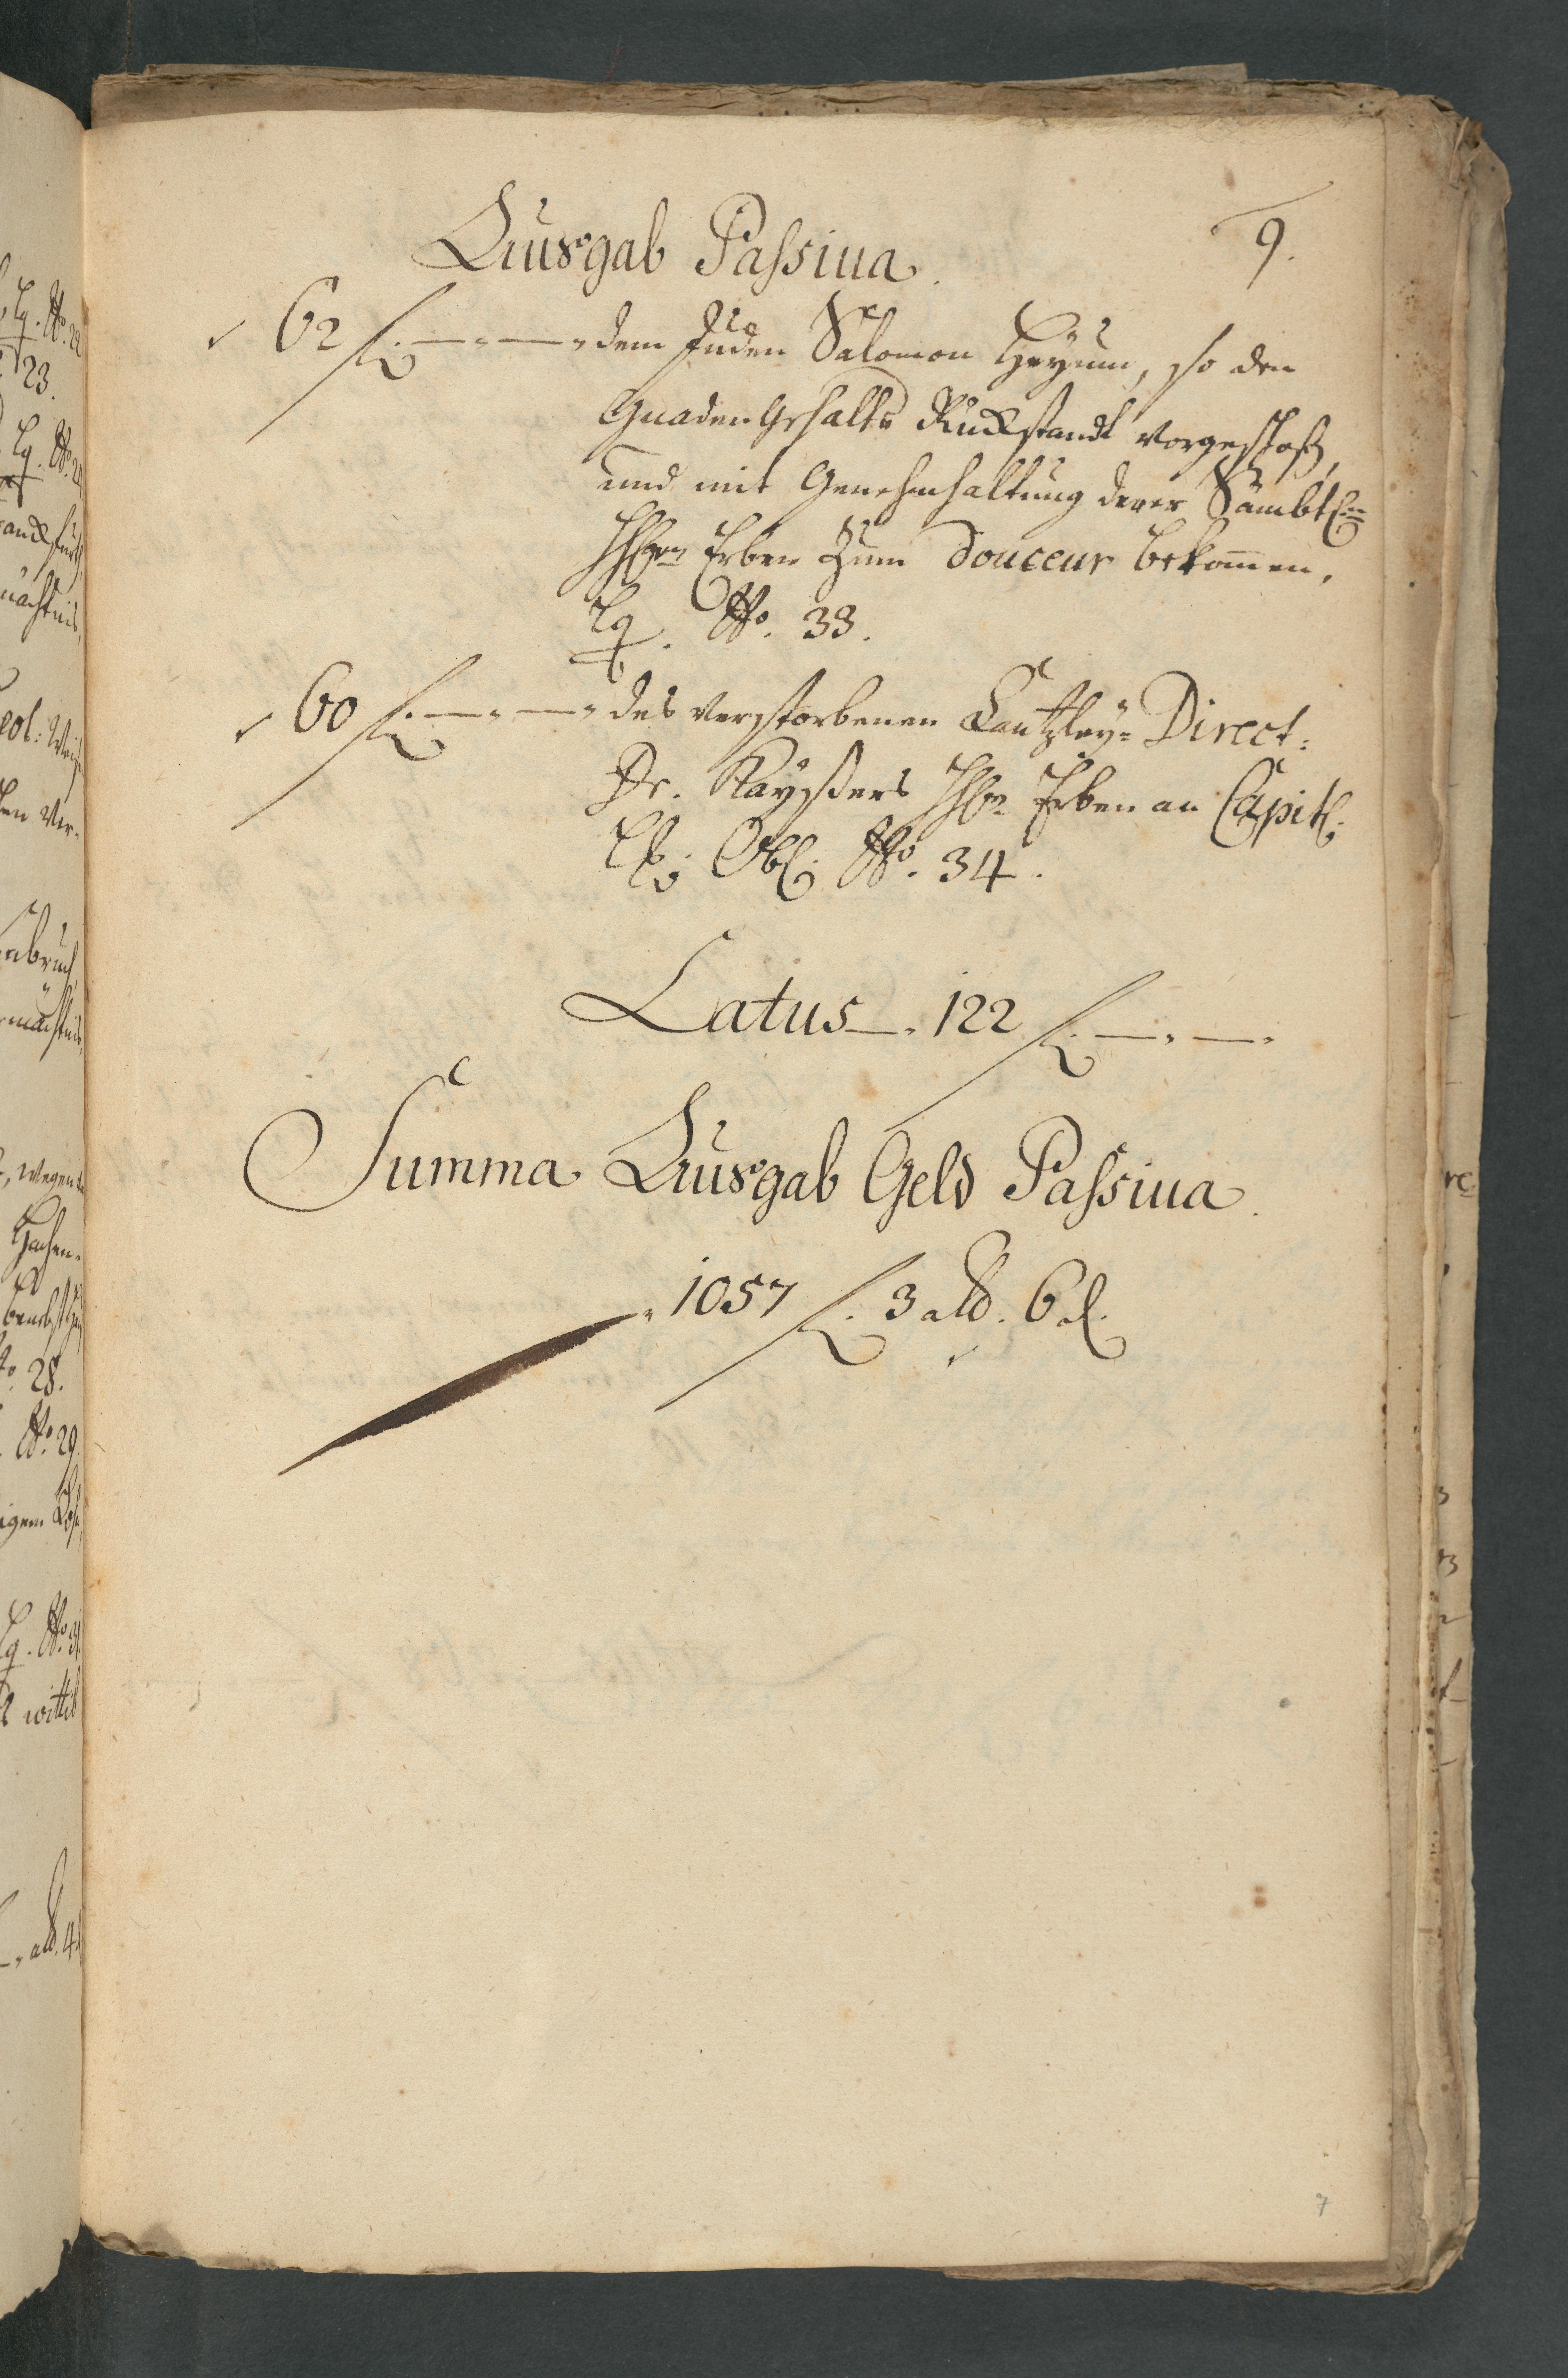 9.
Ausgab Passiva.
62 fl. — „ — „ dem Juden Salomon Heyum, so den
Gnaden Gehalts Rückstandt vorgeschoß,
und mit Genehmhaltung derer Sämbtl.
Erben zum douceur bekommen,
Lq. No. 33.
60 fl. — „ — „ des verstorbenen Cantzley= Direct:
Dr. Kayßers Erben an Capitl.
Obl. No. 34.
Latus — „ 122 fl. — „ — „
Summa Ausgab Geld Passiva.
„ 1057 fl. 3 alb. 6 d.
7